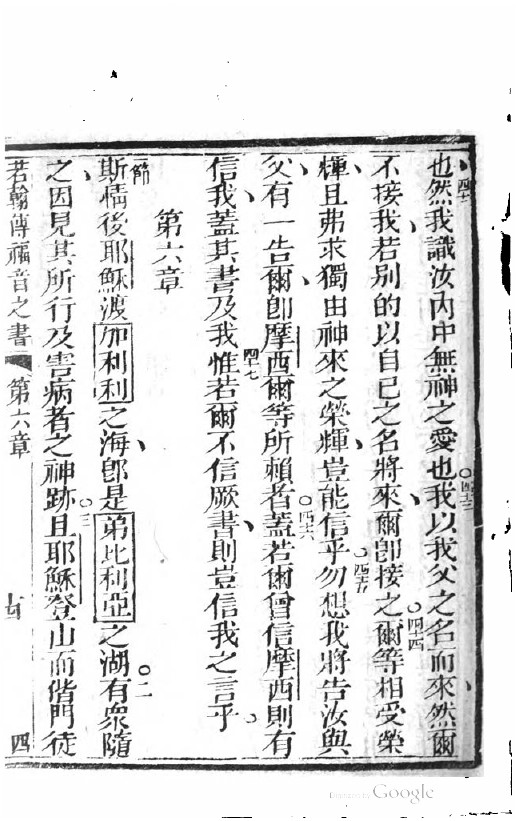 也然四十二我識汝內中無神之愛也四十三我以我父之名而來然爾
不接我若別的以自己之名將來爾卽接之四十四爾等相受榮
輝且弗求獨由神來之榮輝豈能信乎四十五勿想我將告汝與
父有一告爾卽摩西爾等所賴者四十六蓋若爾曾信摩西則有
信我蓋其書及我四十七惟若爾不信厥書則豈信我之言乎
第六章
一節斯情後耶穌渡加利利之海卽是弟比利亞之湖二有衆隨
之因見其所行及害病者之神跡三且耶穌登山而偕門徒
若翰傳福音之書 第六章 四
Digitized by Google